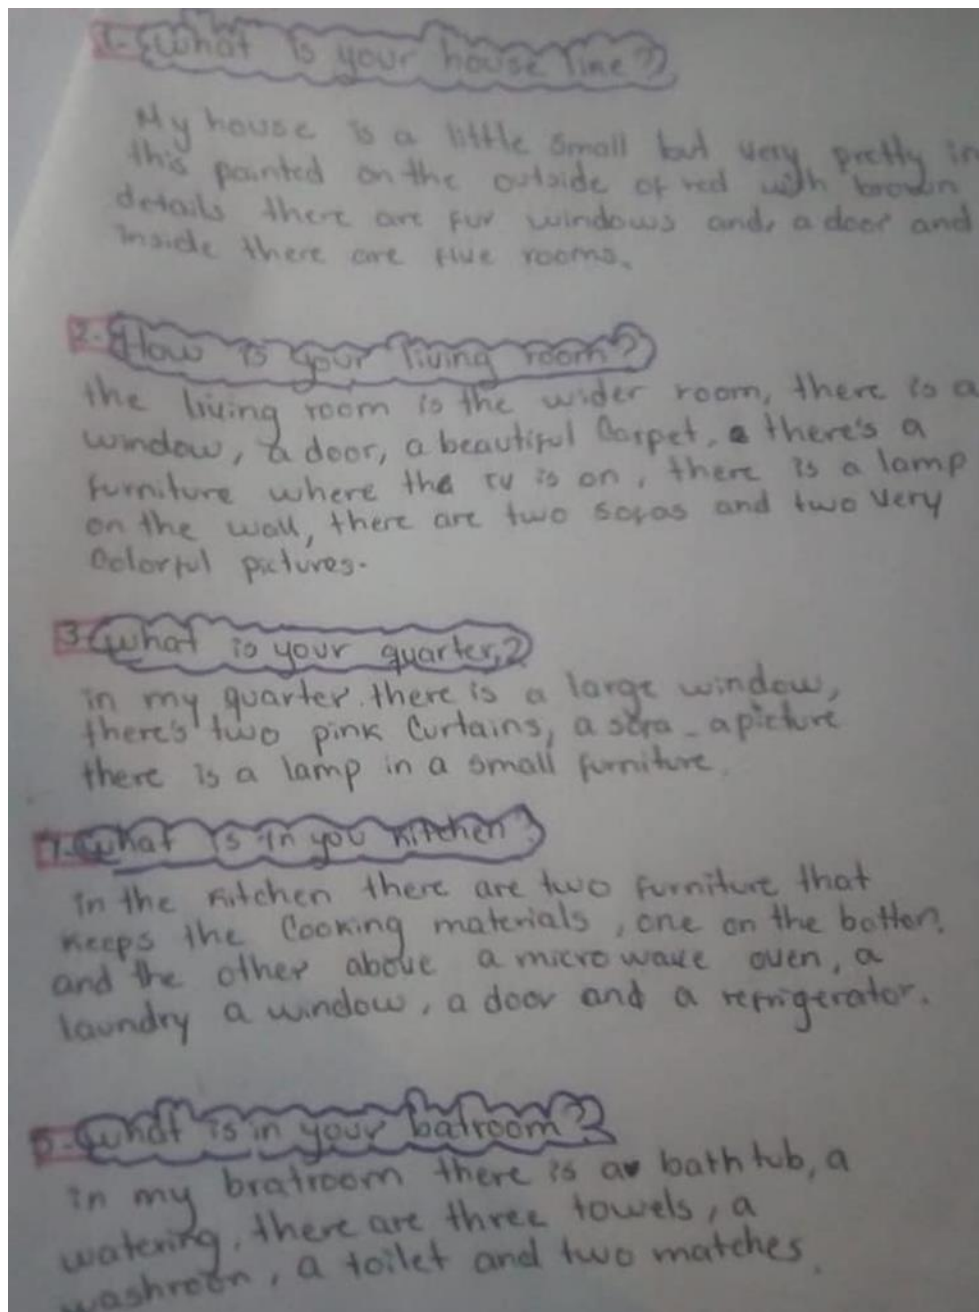 1- What is your house line?
My house is a little small but very pretty in
this painted on the outside of red with brown
details there are fur windows and, a door and
inside there are five rooms.
2- How is your living room?
the living room is the wider room, there is a
window, a door, a beautiful Carpet, there's a
furniture where the TV is on, there is a lamp
on the wall, there are two sofas and two very
Colorful pictures.
3- What is your quarter,?
in my quarter there is a large window,
there's two pink Curtains, a sofa - a picture
there is a lamp in a small furniture.
What is in you kitchen?
in the kitchen there are two furniture that
keeps the Cooking materials, one on the botton,
and the other above a microwave oven, a
laundry a window, a door and a refrigerator.
5- What is in your batroom?
in my bratroom there is a bath tub, a
watering, there are three towels, a
washroon, a toilet and two matches.